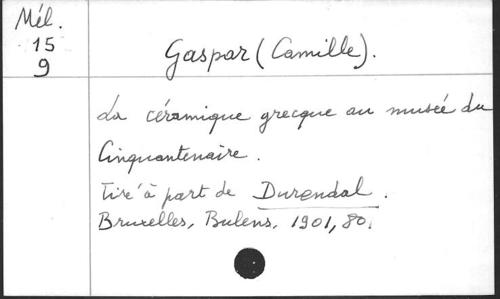 Mél.
15
9
Gaspar (Camille).
La céramique grecque au musée du
Cinquantenaire.
Tiré à part de Durendal.
Bruxelles, Bulens, 1901, 8o.